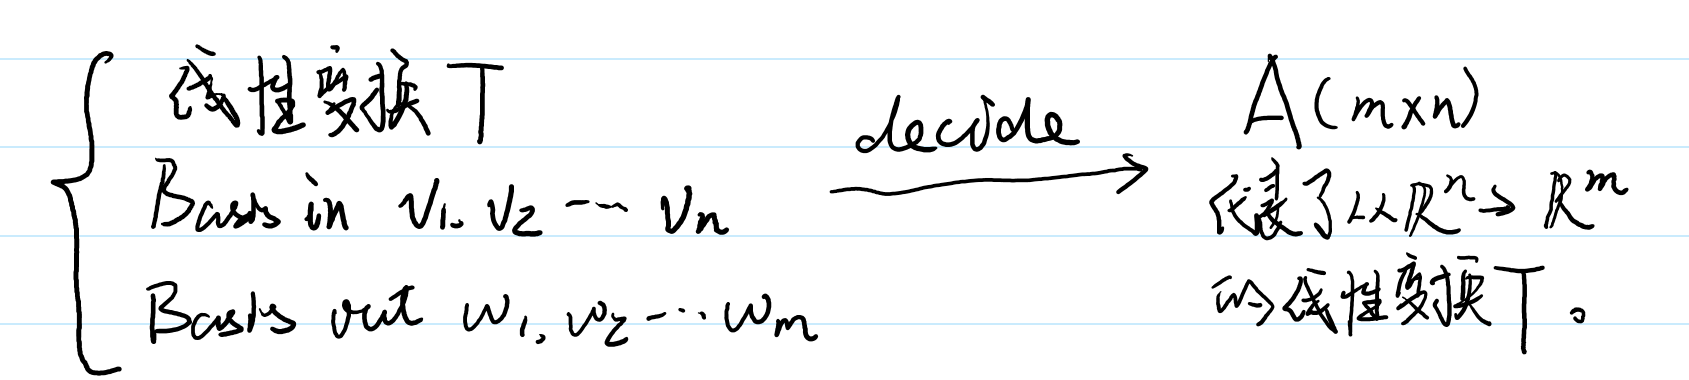 线性变换T
Basis in v1, v2 ... vn
Basis out w1, w2 ... wm
decide
A(m×n)
代表了从ℝⁿ→ℝᵐ
的线性变换T。